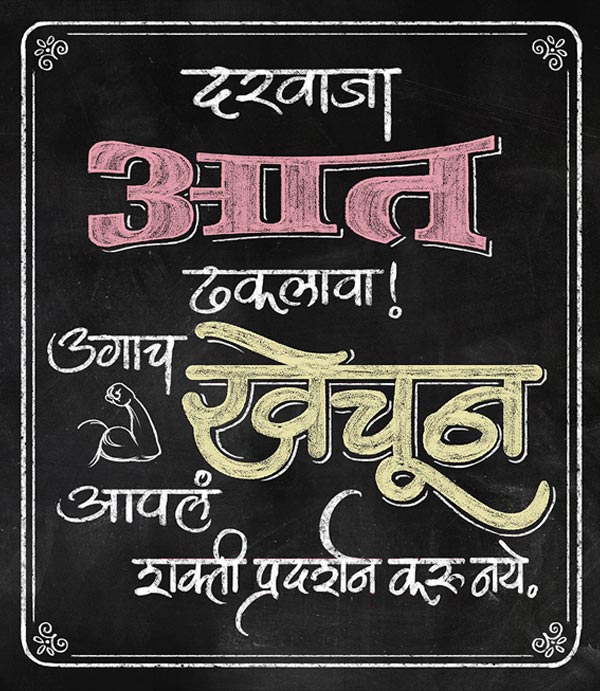 दरवाजा
आत
ढकलावा!
उगाच
खेचून
आपलं
शक्ती प्रदर्शन करू नये.